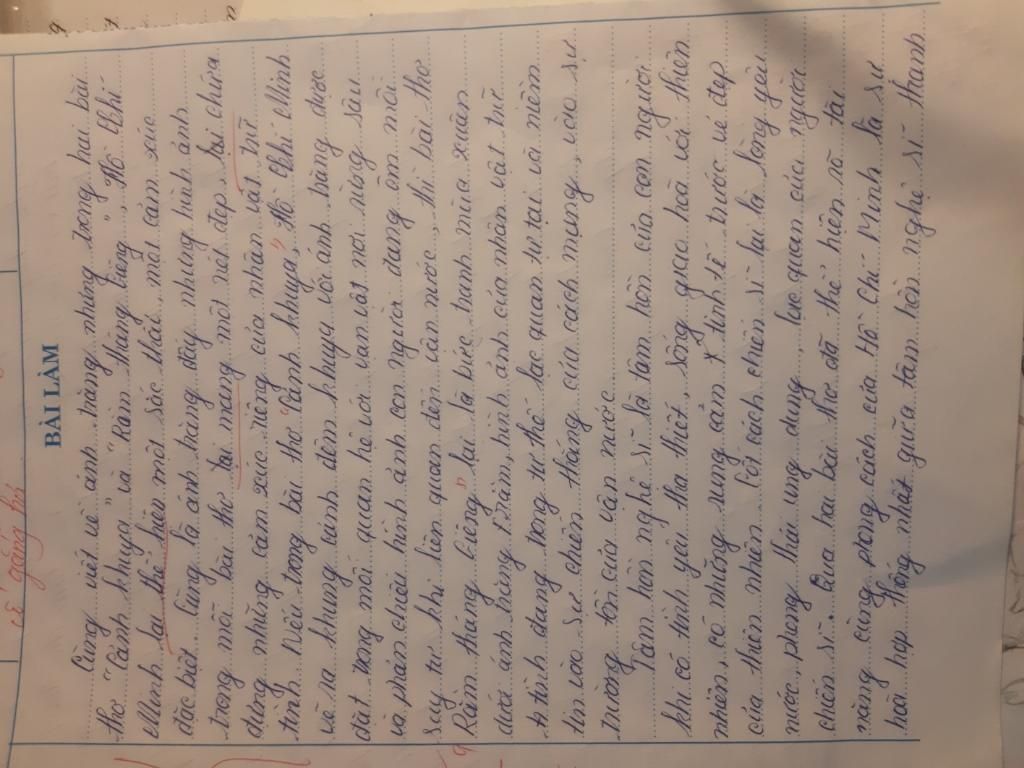 cố gắng
BÀI LÀM
Cùng viết về ánh trăng nhưng trong hai bài
thơ "Cảnh khuya" và "Rằm tháng Giêng", Hồ Chí
Minh lại thể hiện một sắc thái, một cảm xúc
đặc biệt. Cùng là ánh trăng đấy nhưng hình ảnh
trong mỗi bài thơ lại mang một nét đẹp, lại chứa
đựng những cảm xúc riêng của nhân vật trữ
tình. Nếu trong bài thơ "Cảnh khuya", Hồ Chí Minh
vẽ ra khung cảnh đêm khuya với ánh trăng được
đặt trong mối quan hệ với vạn vật nơi rừng sâu
và phản chiếu hình ảnh con người đang ôm nỗi
suy tư khi liên quan đến vận nước, thì bài thơ
Rằm tháng Giêng" lại là bức tranh mùa xuân
dưới ánh trăng rằm, hình ảnh của nhân vật trữ
tình đang trong tư thế lạc quan tự tại và niềm
tin vào sự chiến thắng của cách mạng, vào sự
trường tồn của vận nước.
Tâm hồn nghệ sĩ là tâm hồn của con người
khi có tình yêu tha thiết, sống giao hoà với thiên
nhiên, có những rung cảm tinh tế trước vẻ đẹp
của thiên nhiên. Cốt cách chiến sĩ lại là lòng yêu
nước, phong thái ung dung, lạc quan của người
chiến sĩ. Qua hai bài thơ đã thể hiện rõ tài
năng cùng phong cách của Hồ Chí Minh là sự
hoà hợp thống nhất giữa tâm hồn nghệ sĩ thanh